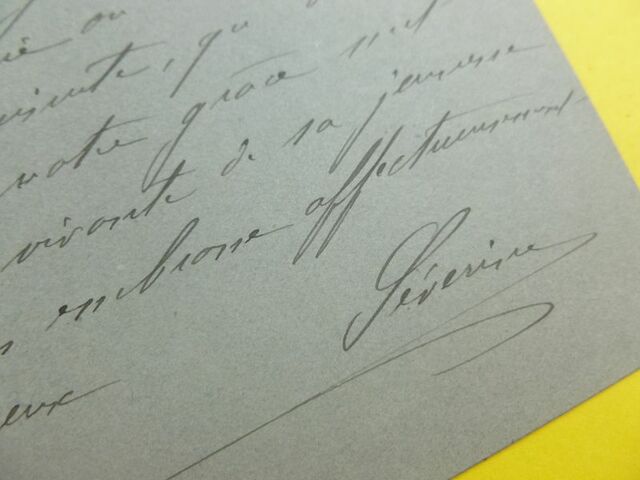 ou
, qu
votre grâce n'est
vivante de sa jeunesse
embrasse affectueusement
Séverine
eux